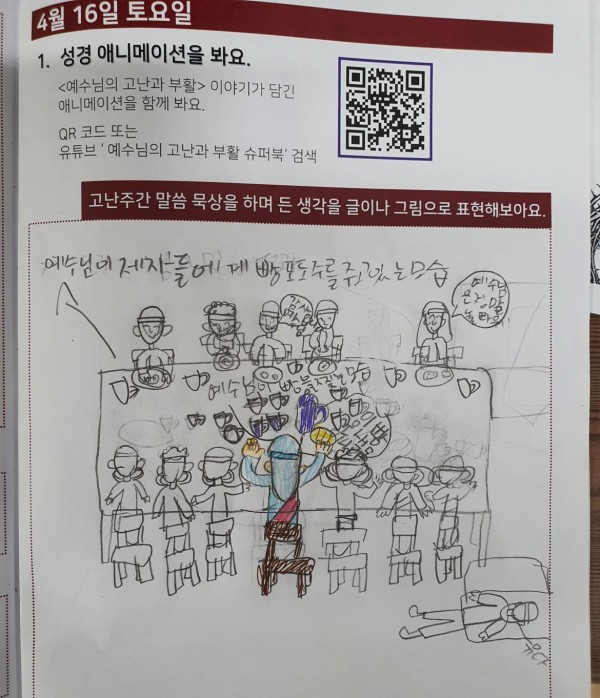 4월 16일 토요일
1. 성경 애니메이션을 봐요.
<예수님의 고난과 부활> 이야기가 담긴
애니메이션을 함께 봐요.
QR 코드 또는
유튜브 ' 예수님의 고난과 부활 슈퍼북' 검색
고난주간 말씀 묵상을 하며 든 생각을 글이나 그림으로 표현해보아요.
예수님이 제자들에게 빵 포도주를 주고있는 모습
예수님
은 정말
놀라워
예수님이 빵
유다